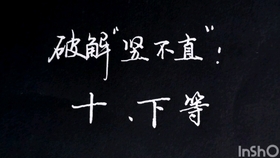 破解“竖不直”：
十、下等
InShO